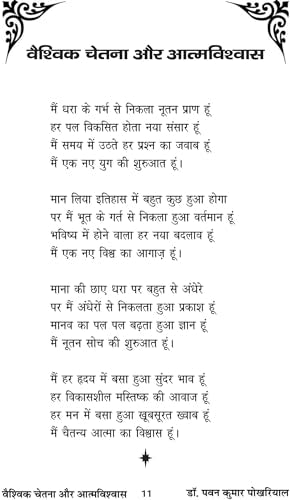 वैश्विक चेतना और आत्मविश्वास
मैं धरा के गर्भ से निकला नूतन प्राण हूं
हर पल विकसित होता नया संसार हूं
मैं समय में उठते हर प्रश्न का जवाब हूं
मैं एक नए युग की शुरुआत हूं।
मान लिया इतिहास में बहुत कुछ हुआ होगा
पर मैं भूत के गर्त से निकला हुआ वर्तमान हूं
भविष्य में होने वाला हर नया बदलाव हूं
मैं एक नए विश्व का आगाज़ हूं।
माना की छाए धरा पर बहुत से अंधेरे
पर मैं अंधेरों से निकलता हुआ प्रकाश हूं
मानव का पल पल बढ़ता हुआ ज्ञान हूं
मैं नूतन सोच की शुरुआत हूं।
मैं हर हृदय में बसा हुआ सुंदर भाव हूं
हर विकासशील मस्तिष्क की आवाज हूं
हर मन में बसा हुआ खूबसूरत ख्वाब हूं
मैं चैतन्य आत्मा का विश्वास हूं।
वैश्विक चेतना और आत्मविश्वास 11 डॉ. पवन कुमार पोखरियाल